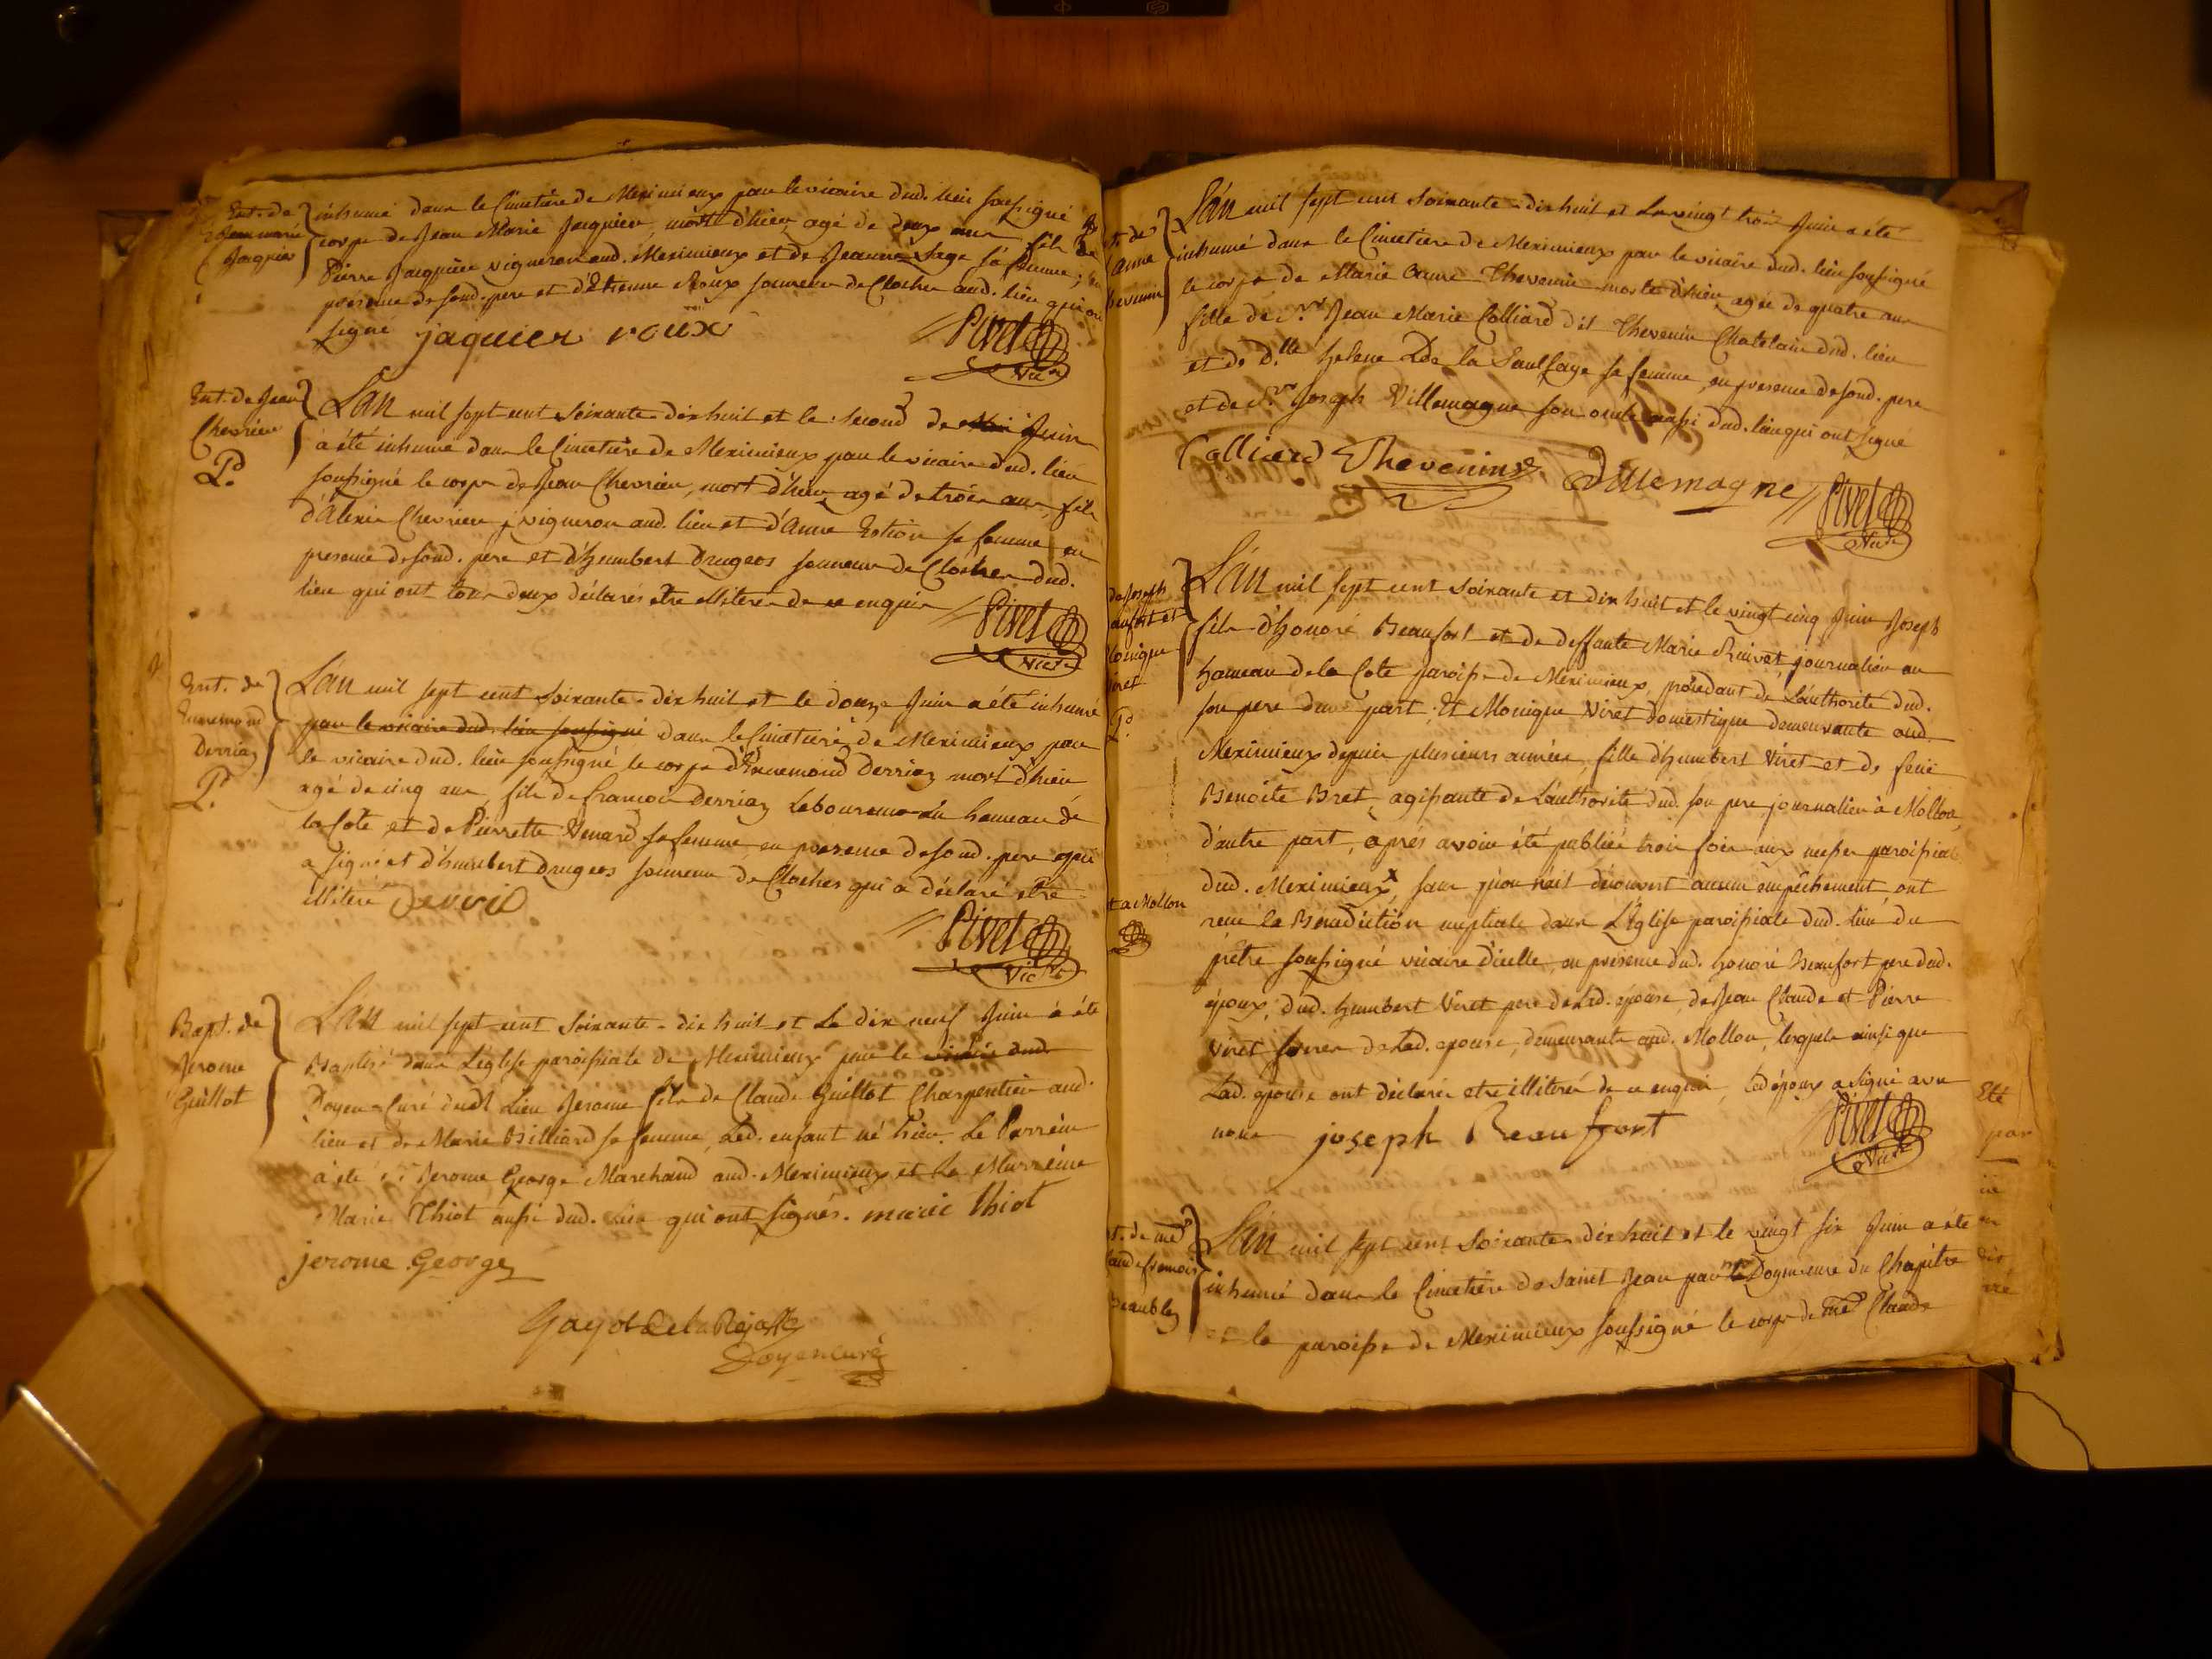 Ent. de
Jean marie
Jaquier
inhumé dans le Cimetiere de Meximieux par le vicaire dud. lieu soussigné le
corps de Jean Marie Jacquier, mort d'hier, agé de deux ans fils de
Pierre Jacquier vigneron aud. Meximieux et de Jeanne Sage sa femme; en
presence de sond. pere et d'Etienne Roux sonneur de Cloches aud. lieu qui ont
signé jaquier roux
Pivet
Vic.re
Ent. de Jean
Chevrier
P.
L'an mil sept cent soixante dix huit et le second de Juin
a été inhumé dans le Cimetiere de Meximieux par le vicaire dud. lieu
soussigné le corps de Jean Chevrier, mort d'hier, agé de trois ans, fils
d'Alexis Chevrier vigneron aud. lieu et d'Anne sa femme en
presence de sond. pere et d'humbert Drugeos sonneur de Cloches dud.
lieu qui ont tous deux déclarés etre illiterés de ce enquis
Pivet
Vic.re
Ent. de
Ennemond
Derriaz
P.
L'an mil sept cent soixante-dix huit et le douze Juin a été inhumé
par le vicaire dud. lieu soussigné dans le Cimetiere de Meximieux par
le vicaire dud. lieu soussigné le corps d'Ennemond Derriaz mort d'hier
agé de cinq ans, fils de francois Derriaz Laboureur du hameau de
la Cote et de Pierrette Venard sa femme en presence de sond. pere qui
a signé et d'humbert Drugeos sonneur de Cloches qui a déclaré etre
illiteré
Pivet
Vic.re
Bapt. de
Jerome
Guillot
L'an mil sept cent soixante-dix huit et le dix neuf Juin a été
Baptisé dans L'eglise paroissiale de Meximieux par le vicaire dud.
Doyen-Curé dudt lieu Jerome fils de Claude Guillot Charpentier aud.
lieu et de Marie Billiard sa femme, led. enfant né hier. Le Parrein
a été Sr Jerome George Marchand aud. Meximieux et la Marreine
Marie Thiot aussi dud. lieu qui ont signés. marie thiot
jerome George
Gayot de la Rejasse
Doyen curé
anne
thevenin
L'an mil sept cent soixante-dix huit et le vingt trois Juin a été
inhumé dans le Cimetiere de Meximieux par le vicaire dud. lieu soussigné
le corps de Marie Anne Thevenin morte d'hier, agée de quatre ans
fille de Sr Jean Marie Colliard dit Thevenin Chatelain dud. lieu
et de D.lle helene De la Saulsaye sa femme, en presence de sond. pere
et de Sr Joseph Villemagne son oncle aussi dud. lieu qui ont signé
Colliard Thevenin Villemagne
Pivet
Vic.re
de Joseph
aufort et
onique
iret
P.
L'an mil sept cent soixante et dix huit et le vingt cinq Juin Joseph
fils d'honoré Beaufort et de deffunte Marie Ruivet, journalier au
hameau de la Cote paroisse de Meximieux, procedant de L'authorité dud.
son pere d'une part; Et Monique Viret domestique demeurante aud.
Meximieux depuis plusieurs années, fille d'humbert Viret et de feue
Benoite Bret, agissante de L'authorité dud. son pere, journalier à Mollon,
d'autre part, aprés avoir été publiés trois fois aux messes paroissiales
dud. Meximieux x, sans qu'on n'ait découvert aucun empêchement, ont
et a Mollon
recu la Bénédiction nuptiale dans L'Eglise paroissiale dud. lieu du
prêtre soussigné vicaire d'icelle, en présence dud. honoré Beaufort pere dud.
époux, dud. humbert Viret pere de lad. épouse, de Jean Claude et Pierre
Viret freres de lad. epouse, demeurants aud. Mollon, lesquels ainsi que
Lad. epouse ont déclarés etre illiterés de ce enquis, led époux a signé avec
nous joseph Beauffort
Pivet
Vic.re
t. de me
aude francois
L'an mil sept cent soixante-dix huit et le vingt six Juin a été
inhumé dans le Cimetiere de Saint Jean par nous Doyen-curé du Chapitre
et la paroisse de Meximieux soussigné le corps de me Claude
Eté
par